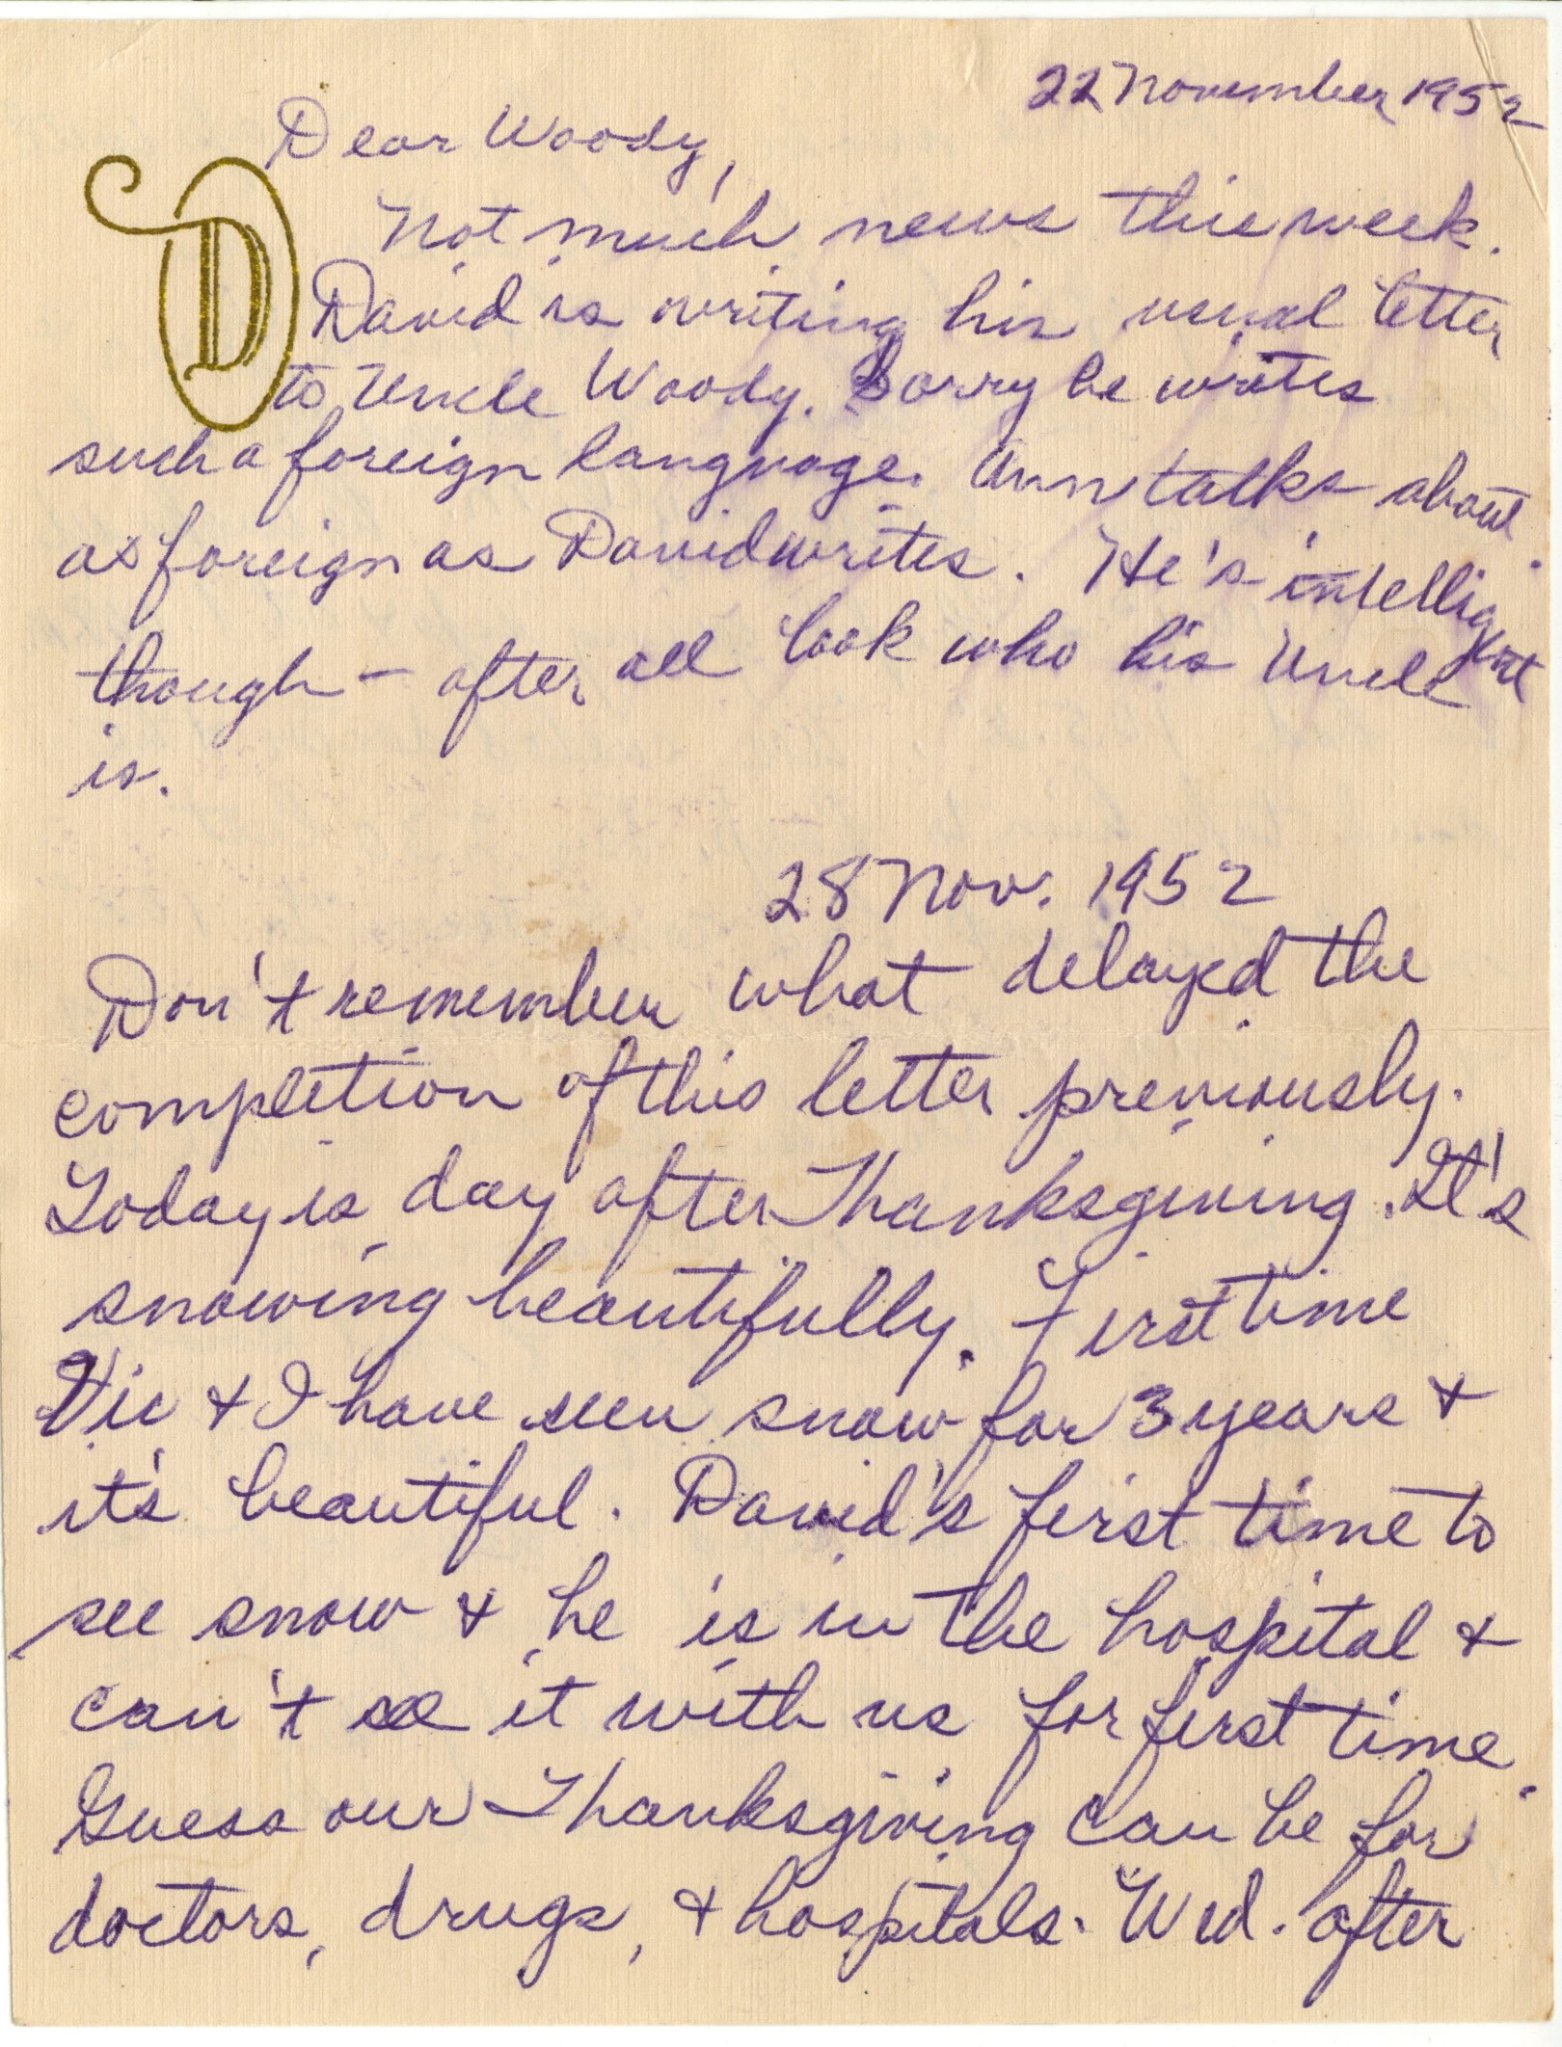 22 November 1952
Dear Woody,
D
Not much news this week.
David is writing his usual letter
to Uncle Woody. Sorry he writes
such a foreign language. Ann talks about
as foreign as David writes. He's intelligent
though - after all look who his Uncle
is.
28 Nov. 1952
Don't remember what delayed the
completion of this letter previously.
Today is day after Thanksgiving. It's
snowing beautifully. First time
Vic & I have seen snow for 3 years &
it's beautiful. David's first time to
see snow & he is in the hospital &
can't see it with us for first time.
Guess our Thanksgiving can be for
doctors, drugs, & hospitals. Wed. after